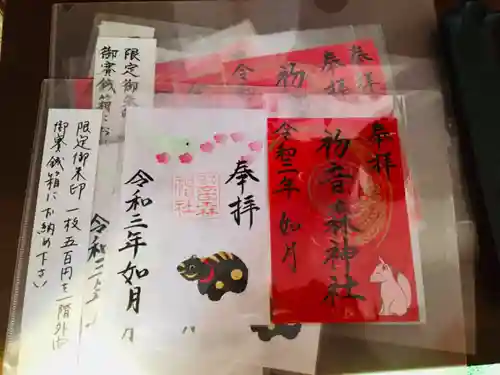 限定御朱印
御賽銭箱にお
奉拝
初
令
限定御朱印 一枚五百円を一階外の
御賽銭箱にお納め下さい
奉拝
令和三年 如月
初音森神社
奉拝
初音森神社
令和二年 如月
令和二年